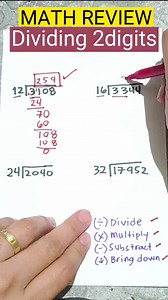 MATH REVIEW
Dividing 2digits
259
12)3108
24
70
60
108
108
0
16)3344
24)2040
32)17952
(÷) Divide
(x) Multiply
(-) Substract
(↓) Bring down